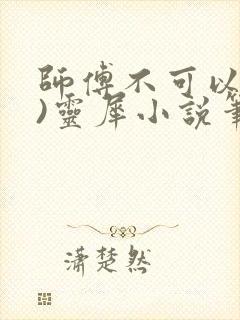 師傅不可以
)靈犀小說筆
瀟楚然